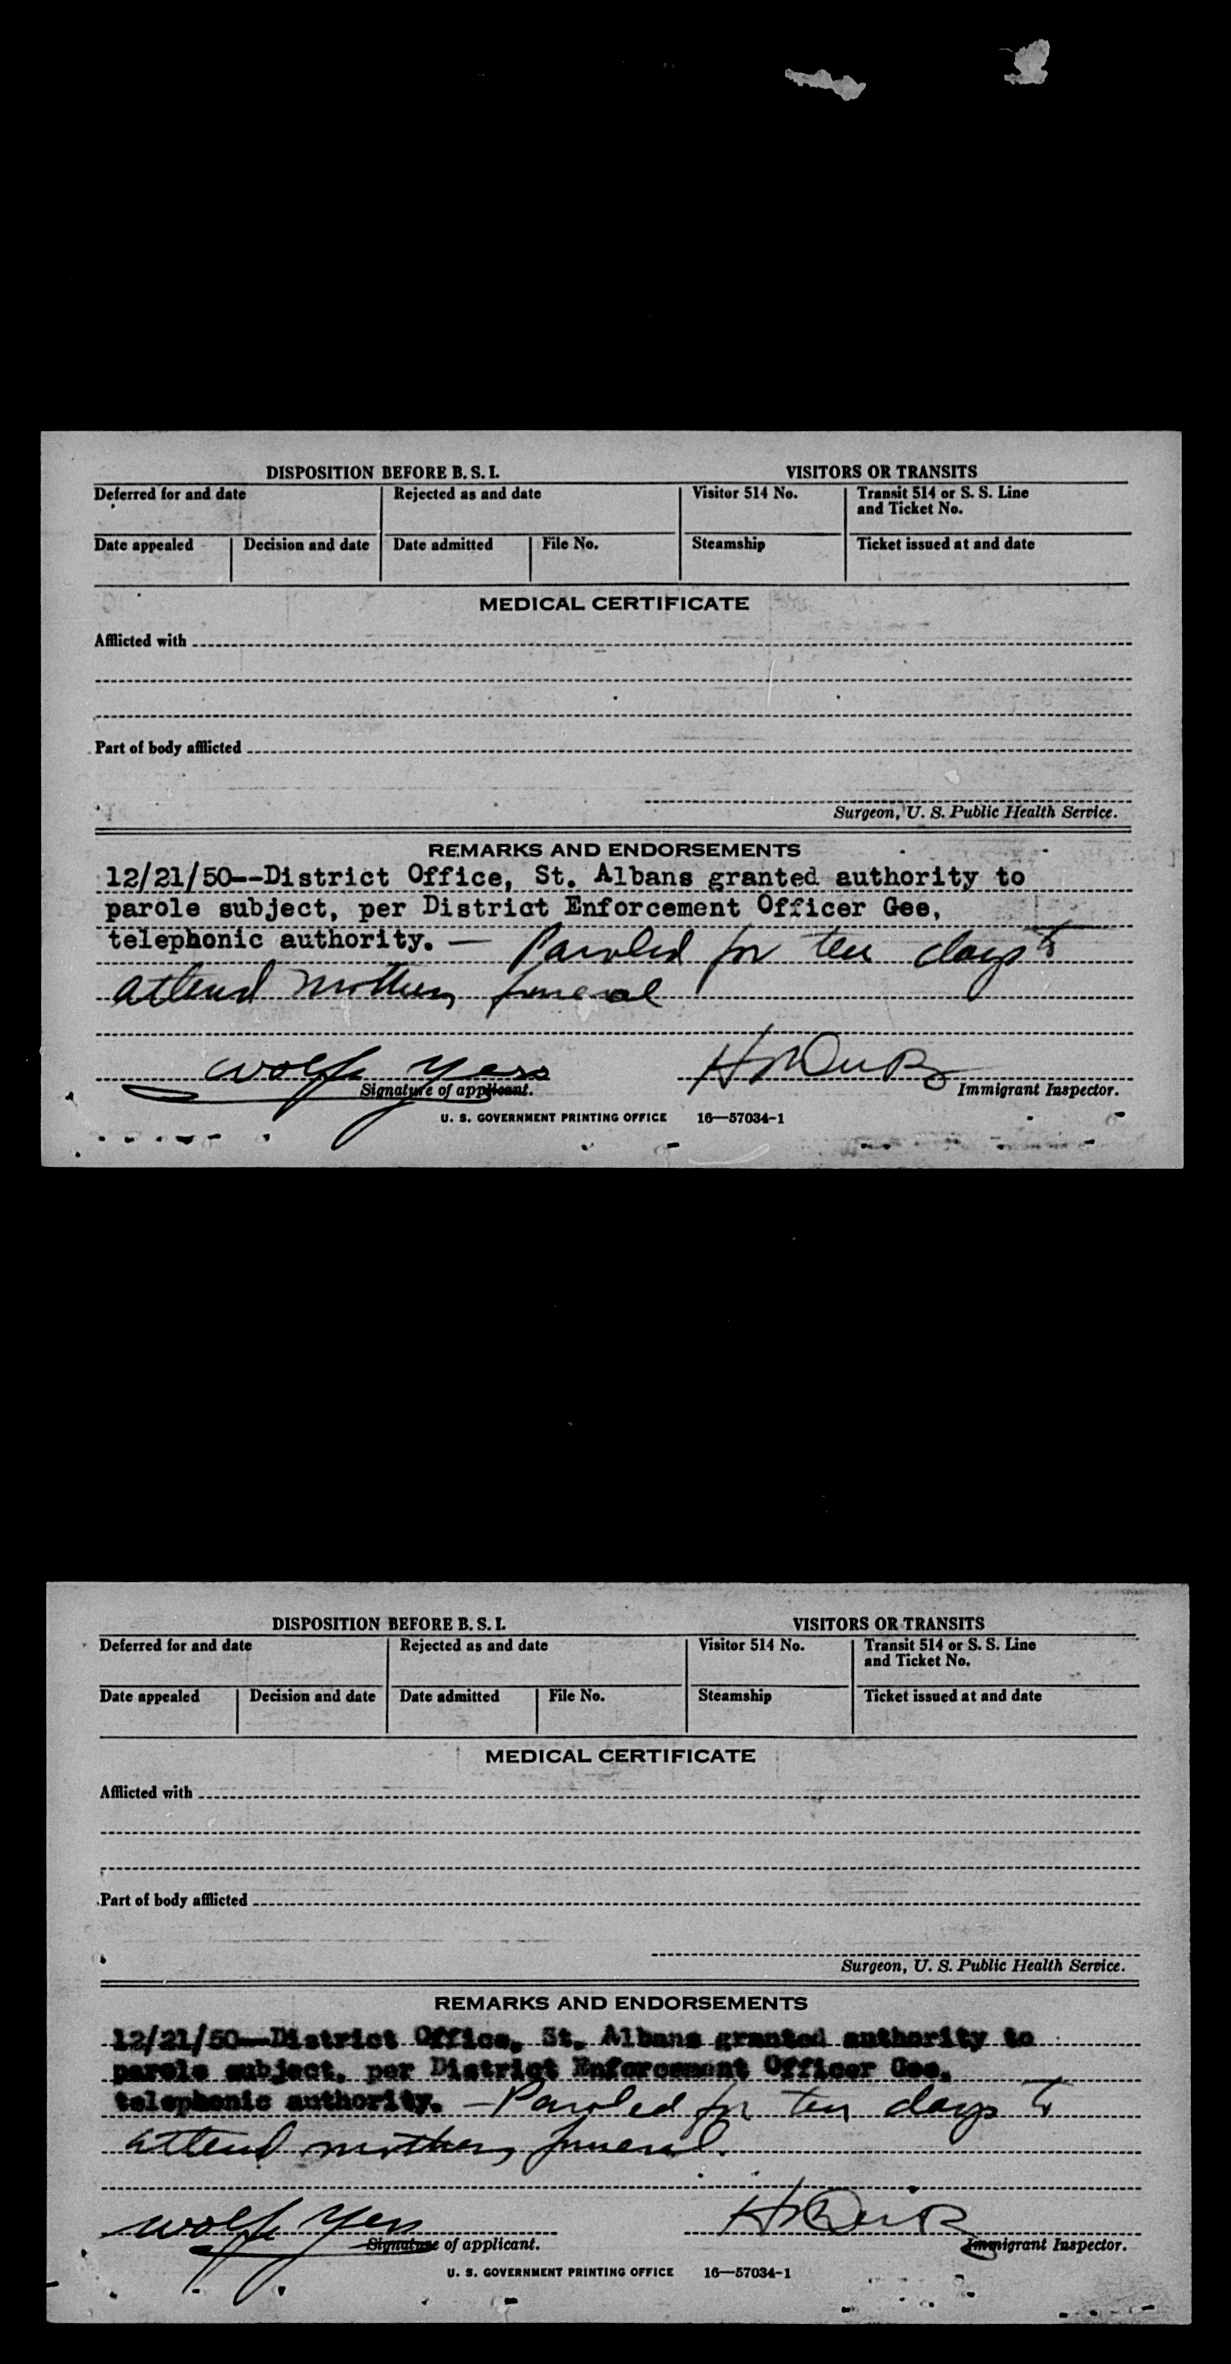 DISPOSITION BEFORE B. S. I.
VISITORS OR TRANSITS
Deferred for and date
Rejected as and date
Visitor 514 No.
Transit 514 or S. S. Line
and Ticket No.
Date appealed
Decision and date
Date admitted
File No.
Steamship
Ticket issued at and date
MEDICAL CERTIFICATE
Afflicted with
Part of body afflicted
Surgeon, U. S. Public Health Service.
REMARKS AND ENDORSEMENTS
12/21/50--District Office, St. Albans granted authority to
parole subject, per District Enforcement Officer Gee,
telephonic authority. — Paroled for ten days to
attend mothers funeral
Wolfe Yess
Signature of applicant.
Immigrant Inspector.
U. S. GOVERNMENT PRINTING OFFICE 16—57034-1
DISPOSITION BEFORE B. S. I.
VISITORS OR TRANSITS
Deferred for and date
Rejected as and date
Visitor 514 No.
Transit 514 or S. S. Line
and Ticket No.
Date appealed
Decision and date
Date admitted
File No.
Steamship
Ticket issued at and date
MEDICAL CERTIFICATE
Afflicted with
Part of body afflicted
Surgeon, U. S. Public Health Service.
REMARKS AND ENDORSEMENTS
12/21/50--District Office, St. Albans granted authority to
parole subject, per District Enforcement Officer Gee,
telephonic authority. — Paroled for ten days to
attend mothers funeral.
Wolfe Yess
Signature of applicant.
Immigrant Inspector.
U. S. GOVERNMENT PRINTING OFFICE 16—57034-1